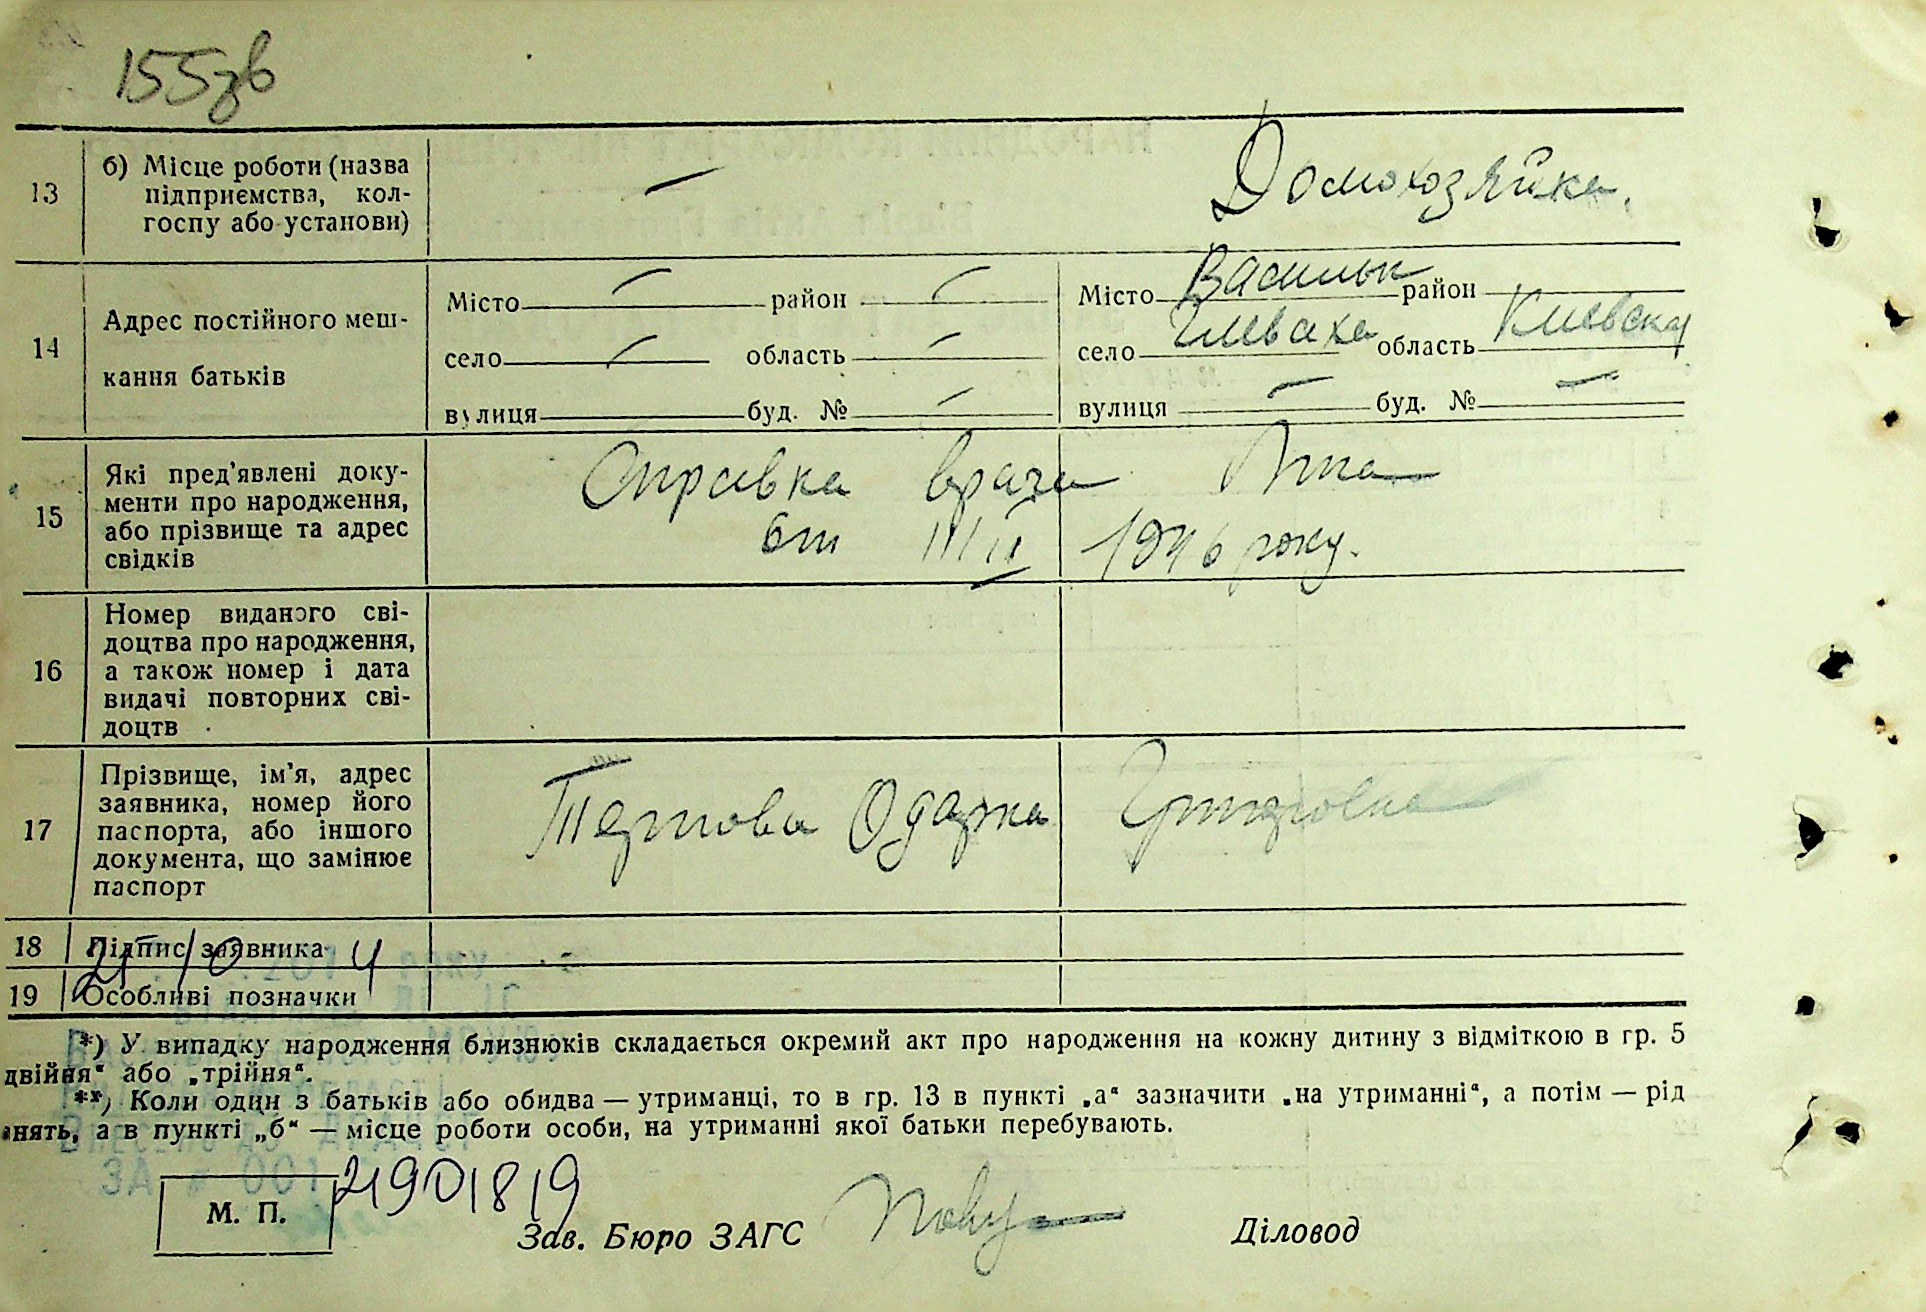 155зв
13 б) Місце роботи (назва підприємства, колгоспу або установи) — Домохозяйка.
14 Адрес постійного мешкання батьків
Місто — район — Місто Васильк район
село — область — село Глеваха область Киевская
вулиця буд. № — вулиця — буд. № —
15 Які пред'явлені доку-
менти про народження,
або прізвище та адрес
свідків
Справка врача
от 1946 року.
16 Номер виданого сві-
доцтва про народження,
а також номер і дата
видачі повторних сві-
доцтв
17 Прізвище, ім'я, адрес
заявника, номер його
паспорта, або іншого
документа, що замінює
паспорт
Тертова Одарка
18 Підпис заявника
21 10 4
19 Особливі позначки
*) У випадку народження близнюків складається окремий акт про народження на кожну дитину з відміткою в гр. 5
двійня" або „трійня".
**) Коли один з батьків або обидва — утриманці, то в гр. 13 в пункті „а" зазначити „на утриманні", а потім — рід
анять, а в пункті „б" — місце роботи особи, на утриманні якої батьки перебувають.
ЗА № 001 21901819
М. П.
Зав. Бюро ЗАГС Діловод